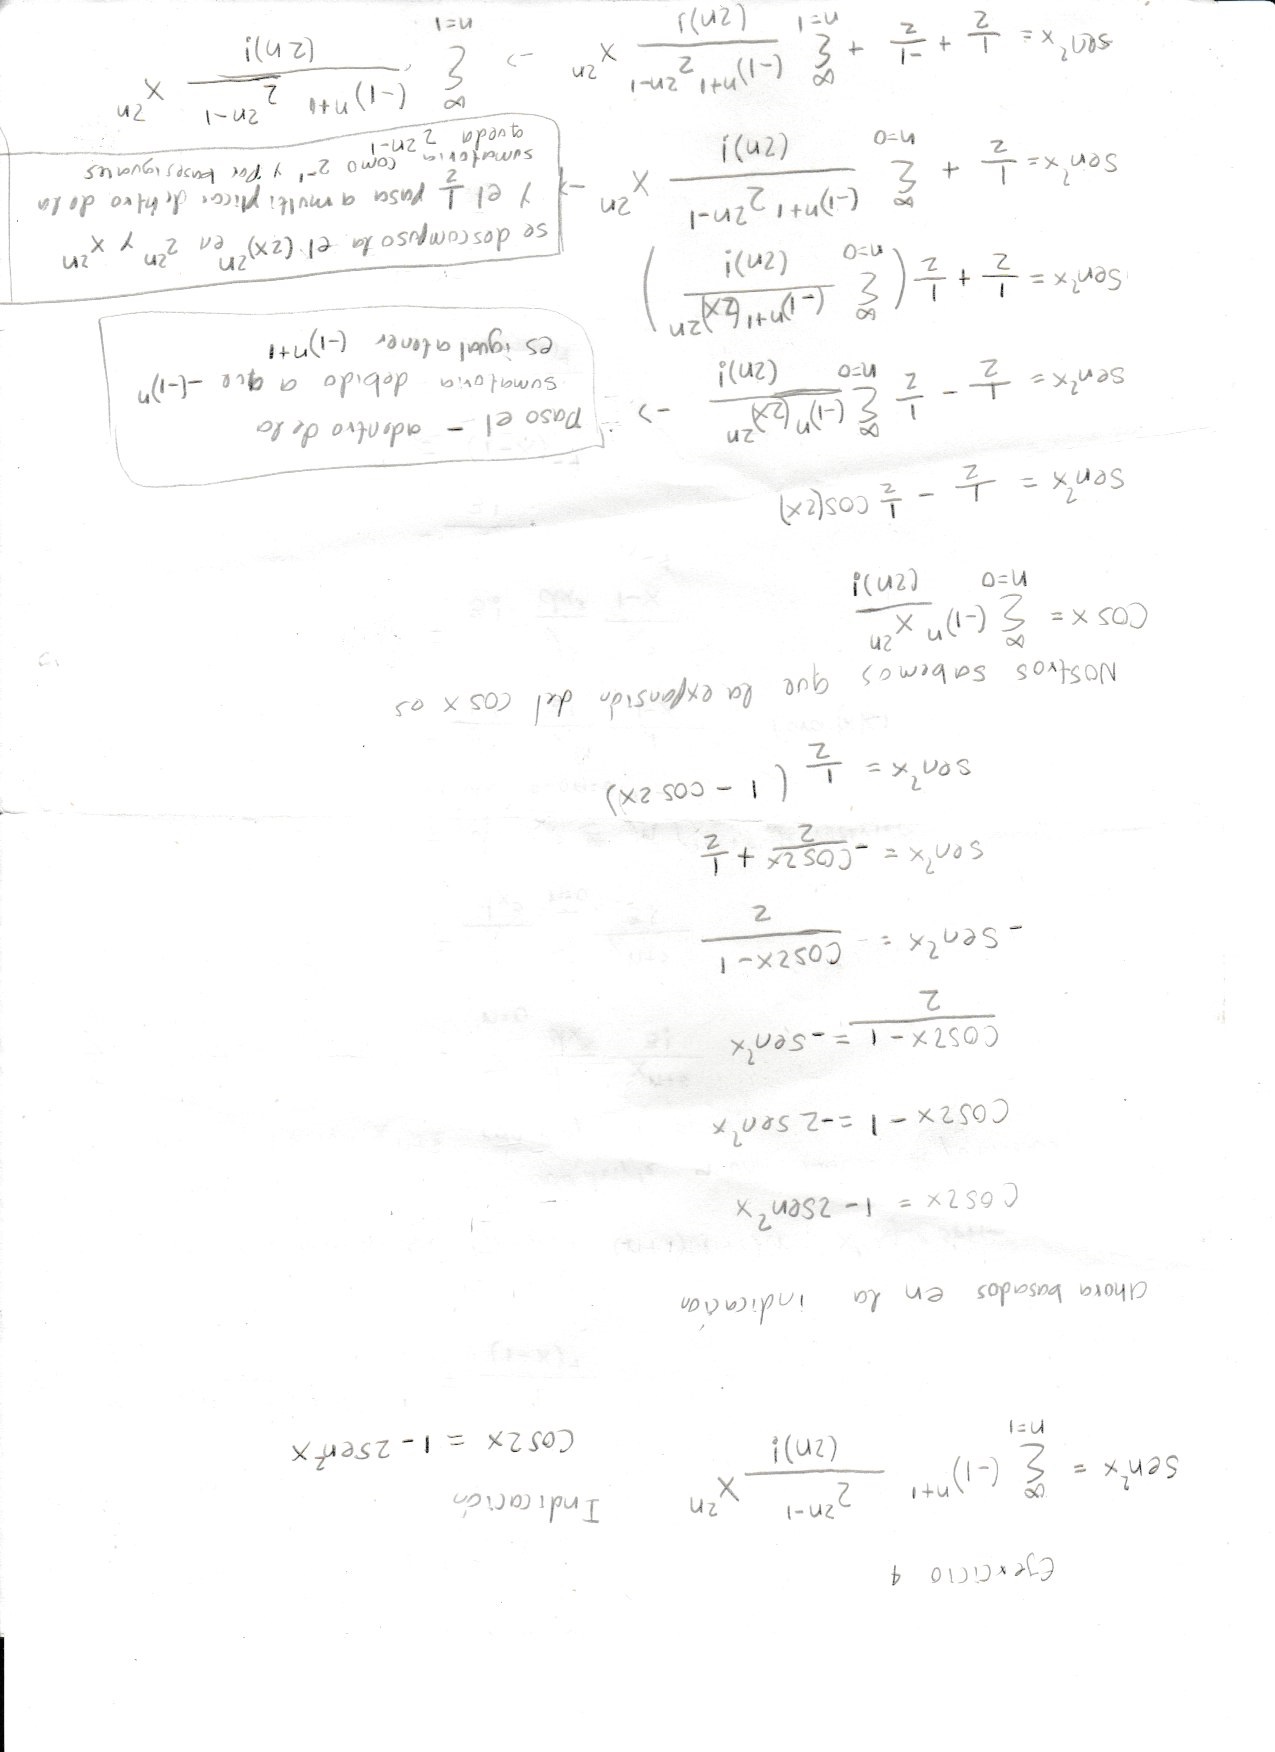 Ejercicio 4
sen²x = ∑_{n=1}^{∞} (-1)^{n+1} \frac{2^{2n-1}}{(2n)!} x^{2n}
Indicación
cos2x = 1-2sen²x
ahora basados en la indicación
cos2x = 1-2sen²x
cos2x - 1 = -2 sen²x
\frac{cos2x-1}{2} = -sen²x
-sen²x = \frac{cos2x-1}{2}
sen²x = -\frac{cos2x}{2} + \frac{1}{2}
sen²x = \frac{1}{2} (1 - cos 2x)
Nostros sabemos que la expansión del cos x es
cos x = ∑_{n=0}^{∞} (-1)^n \frac{x^{2n}}{(2n)!}
sen²x = \frac{1}{2} - \frac{1}{2} cos(2x)
sen²x = \frac{1}{2} - \frac{1}{2} ∑_{n=0}^{∞} \frac{(-1)^n (2x)^{2n}}{(2n)!} ->
Paso el - adentro de la
sumatoria debido a que -(-1)^n
es igual a tener (-1)^{n+1}
sen²x = \frac{1}{2} + \frac{1}{2} ( ∑_{n=0}^{∞} \frac{(-1)^{n+1} (2x)^{2n}}{(2n)!} )
se descompuso la el (2x)^{2n} en 2^{2n} y x^{2n}
y el \frac{1}{2} pasa a multiplicar dentro de la
sumatoria como 2^{-1} y por bases iguales
queda 2^{2n-1}
sen²x = \frac{1}{2} + ∑_{n=0}^{∞} \frac{(-1)^{n+1} 2^{2n-1}}{(2n)!} x^{2n} ->
sen²x = \frac{1}{2} + \frac{-1}{2} + ∑_{n=1}^{∞} \frac{(-1)^{n+1} 2^{2n-1}}{(2n)!} x^{2n} -> ∑_{n=1}^{∞} \frac{(-1)^{n+1} 2^{2n-1}}{(2n)!} x^{2n}